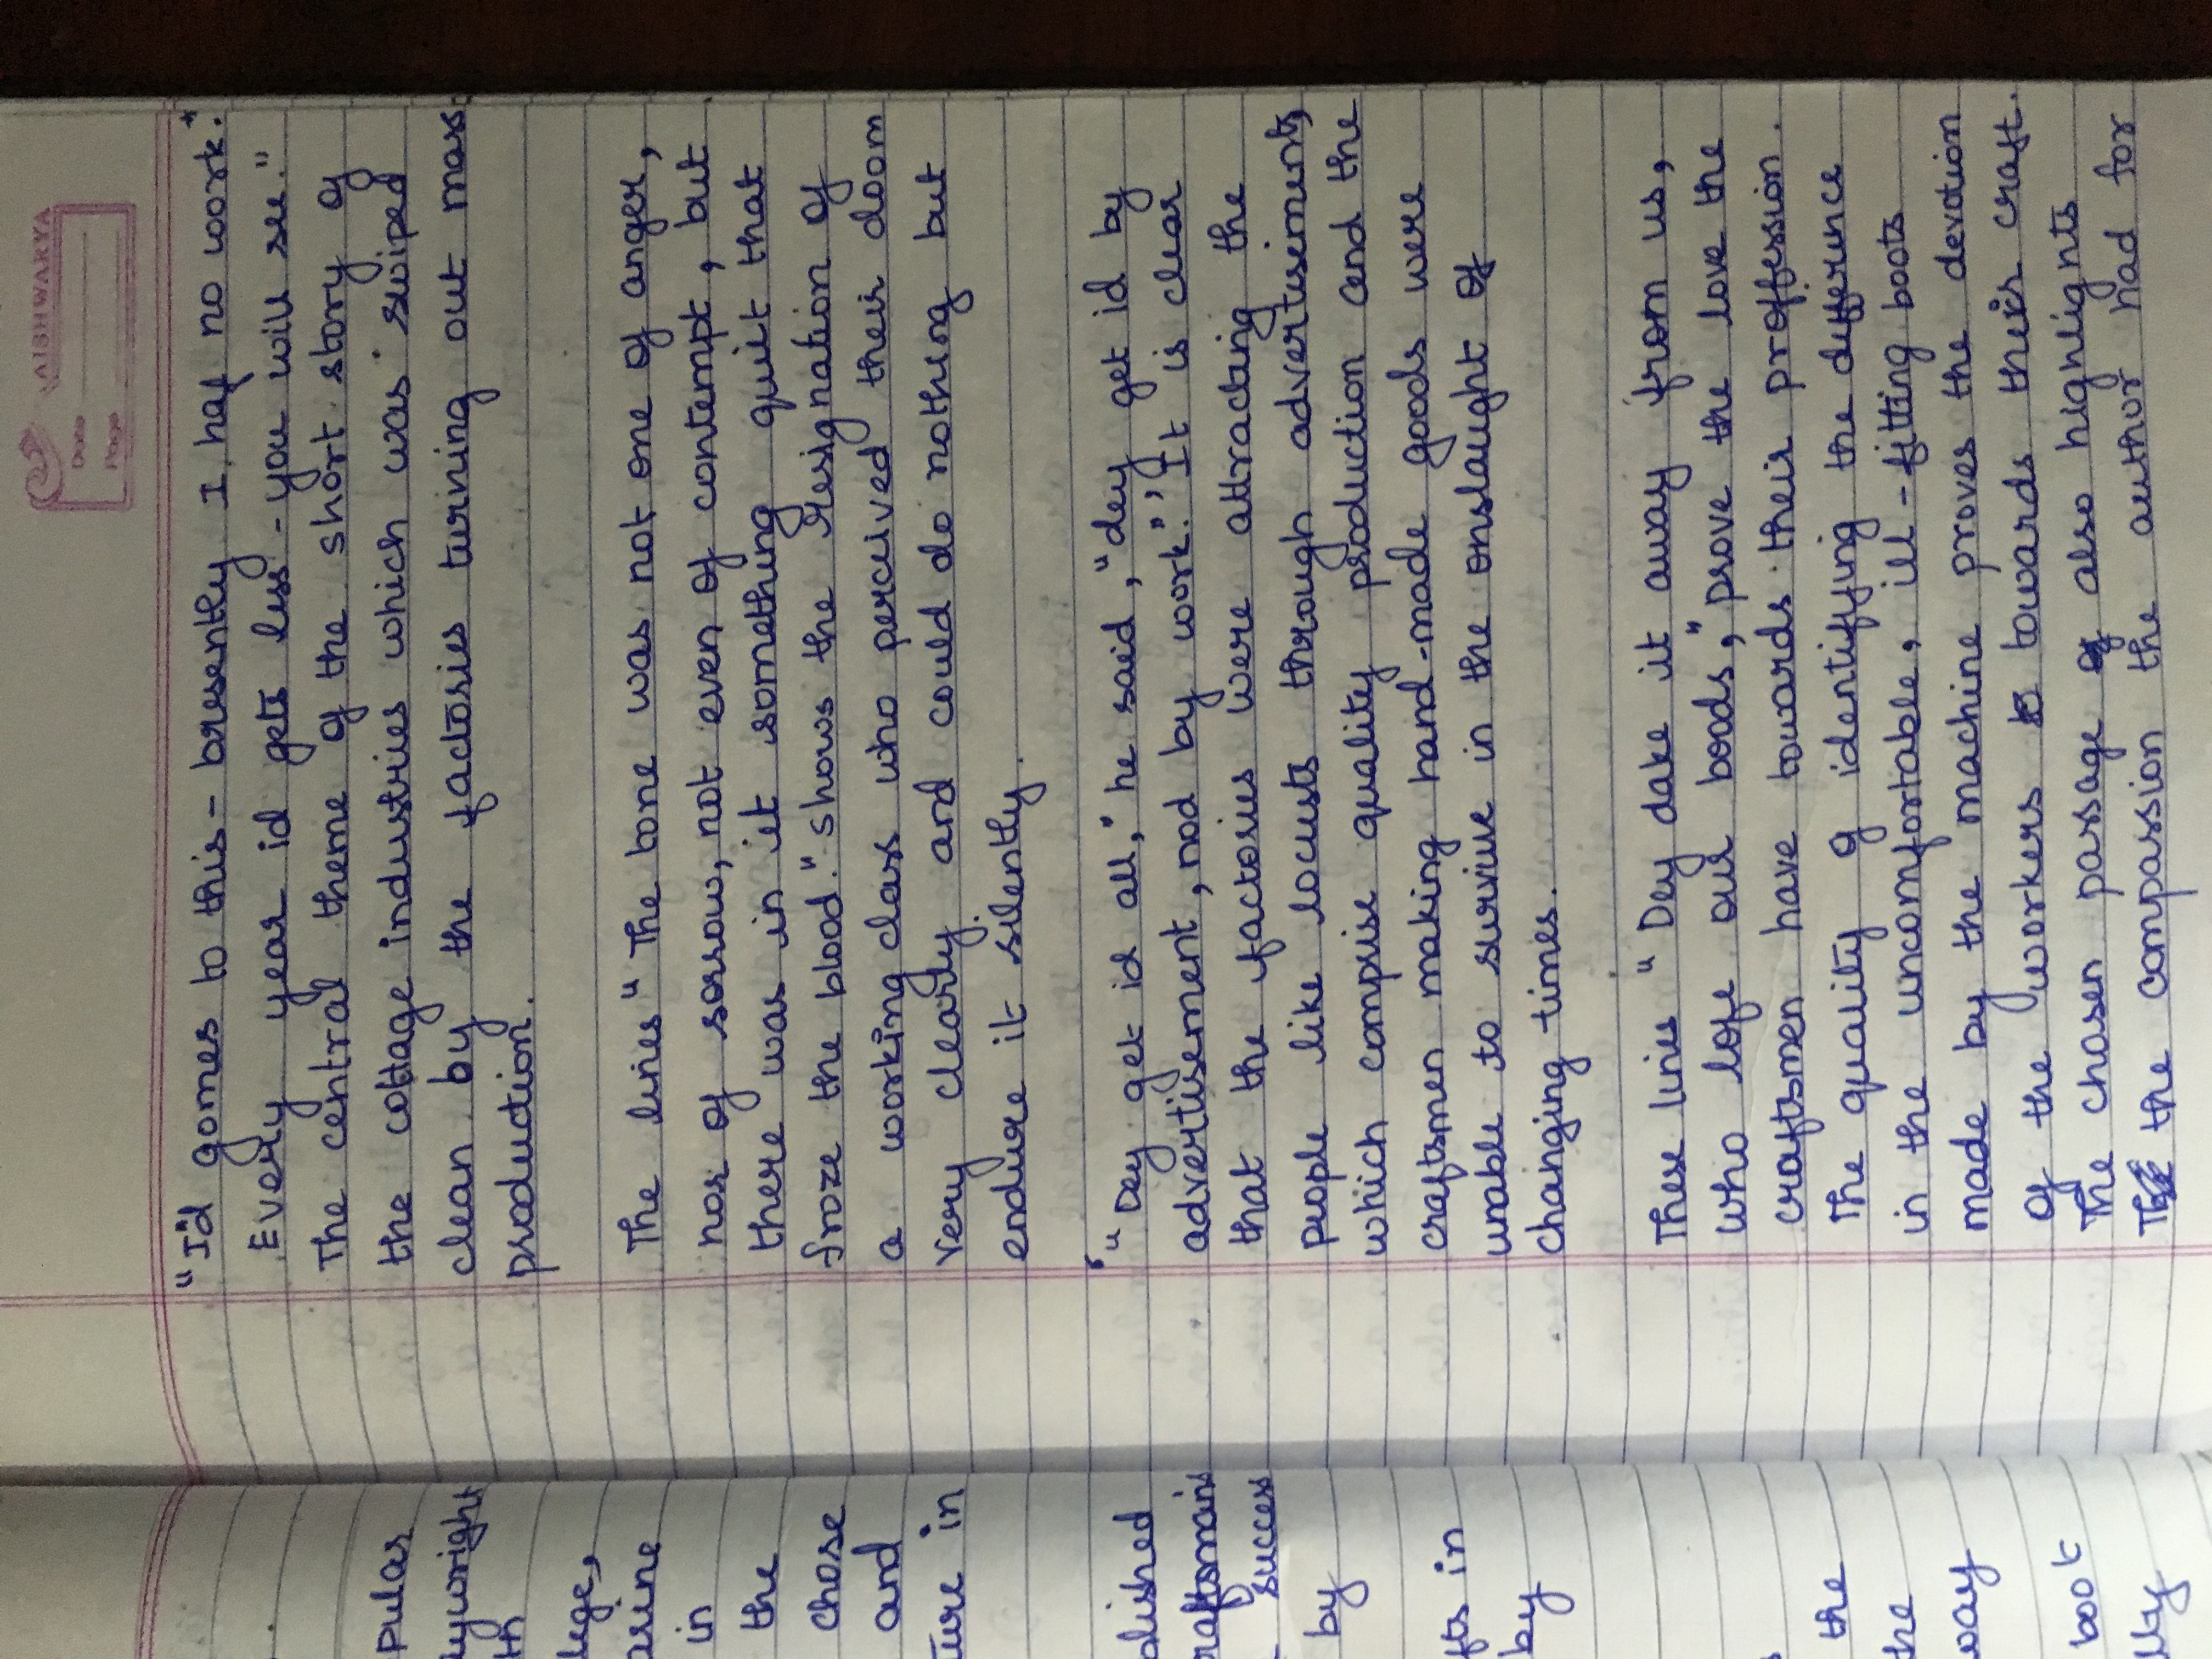 AISHWARYA
Date
Page
"I'd gomes to this - bresently I haf no work."
Every year id gets less - you will see."
The central theme of the short story of
the cottage industries which was swiped
clean by the factories turning out mass
production.
The lines "The tone was not one of anger,
nor of sorrow, not even of contempt, but
there was in it something quiet that
froze the blood." shows the resignation of
a working class who perceived their doom
very clearly and could do nothing but
endure it silently.
'"Dey get id all," he said, "dey get id by
advertisement, nod by work."' It is clear
that the factories were attracting the
people like locusts through advertisements
which comprise quality production and the
craftsmen making hand-made goods were
unable to survive in the onslaught of
changing times.
These lines "Dey dake it away from us,
who lofe our boods," prove the love the
craftsmen have towards their proffession.
The quality of identifying the difference
in the uncomfortable, ill-fitting boots
made by the machine proves the devotion
of the workers towards their craft.
The chosen passage also highlights
the compassion the author had for
pular
lywright
th
lege,
arine
in
the
chose
and
ture in
blished
raftsman's
success
by
fts in
by
s
the
he
way
boot
lly